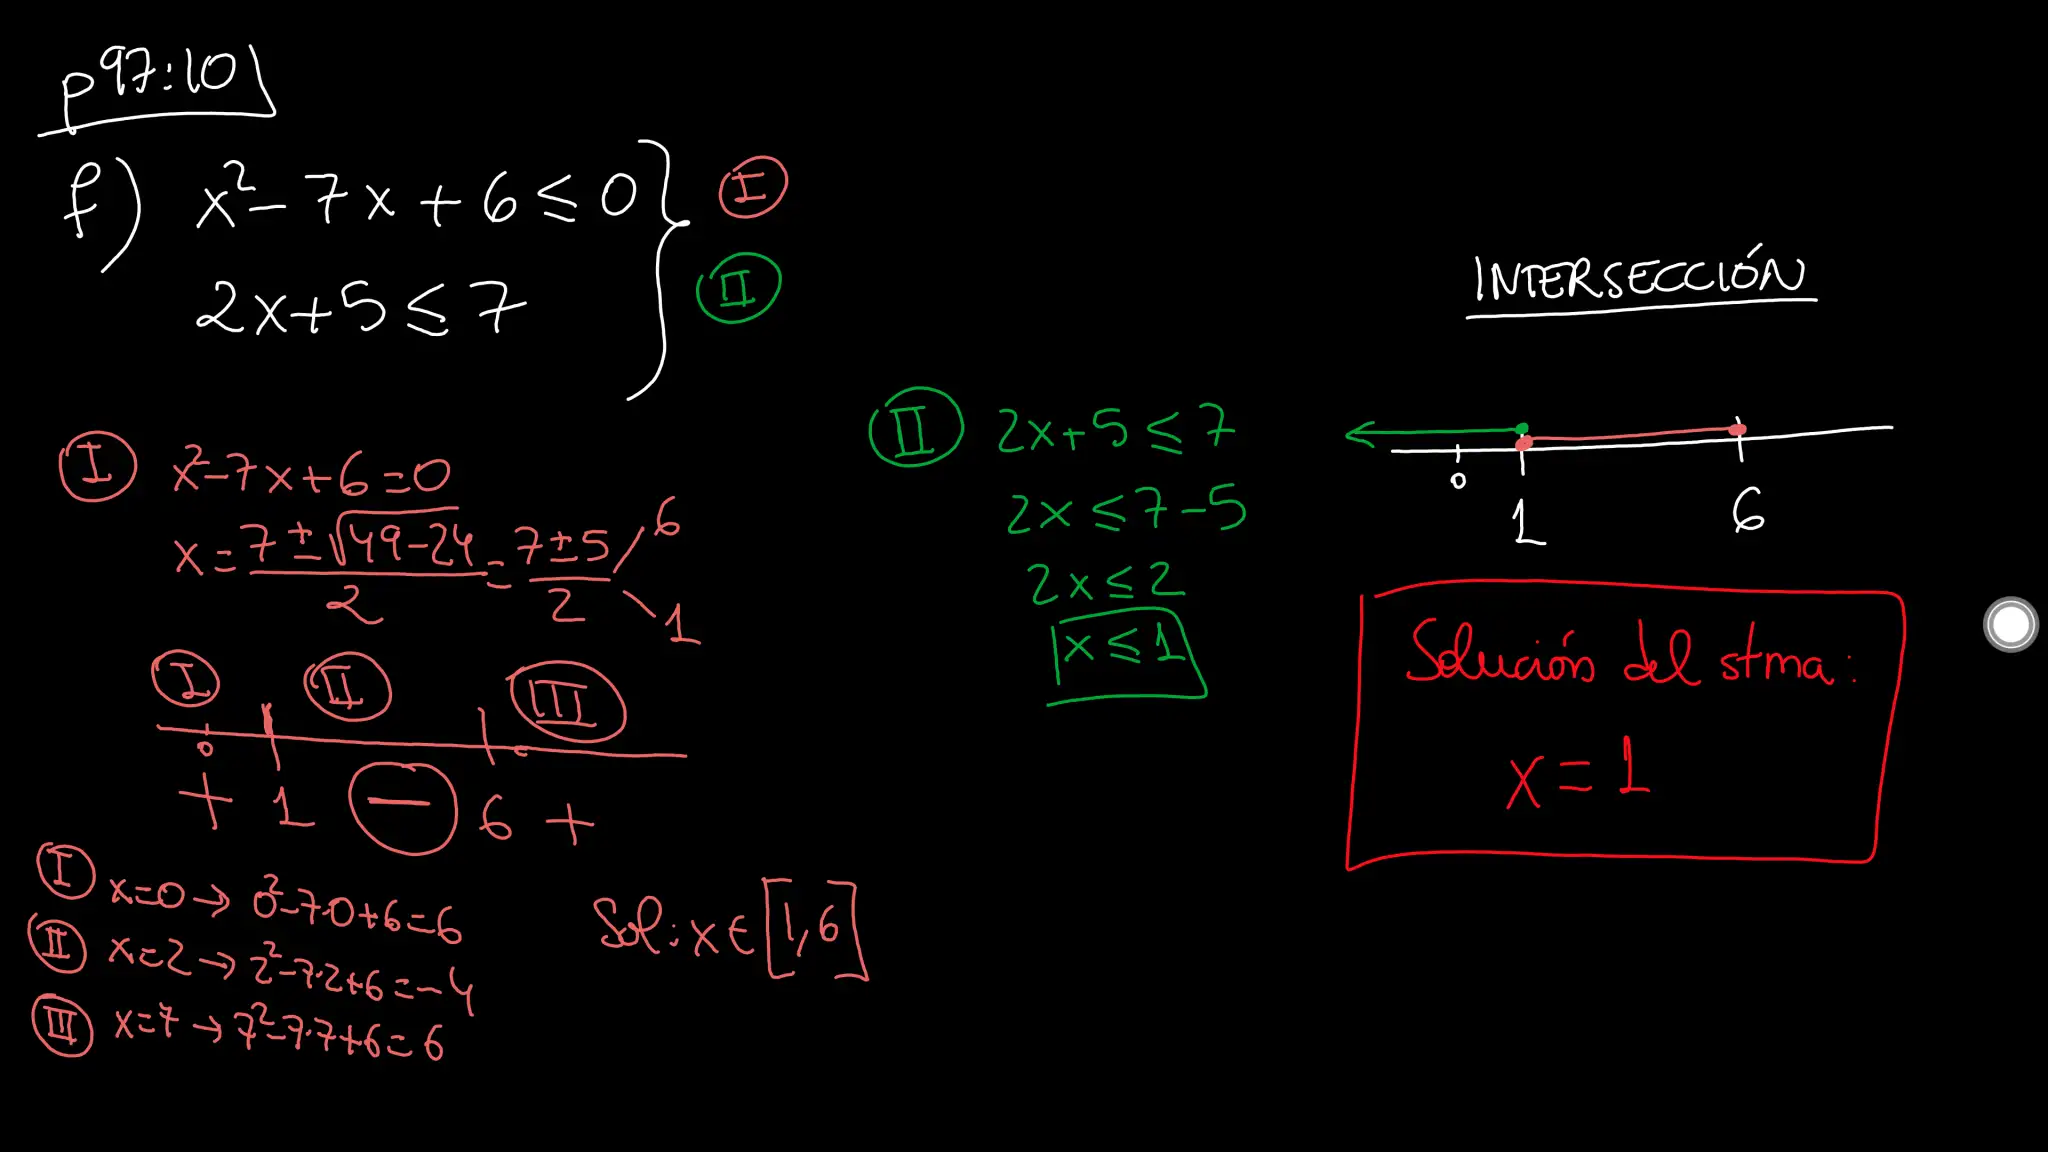 p97:10
f) x²-7x+6≤0 } I
2x+5≤7 II
I x²-7x+6=0
x=(7±√(49-24))/2=(7±5)/2 6
1
I II III
0
+ 1 - 6 +
I x=0→0²-7·0+6=6
II x=2→2²-7·2+6=-4
III x=7→7²-7·7+6=6
Sol: x∈[1,6]
II 2x+5≤7
2x≤7-5
2x≤2
x≤1
INTERSECCIÓN
0 1 6
Solución del stma:
x=1